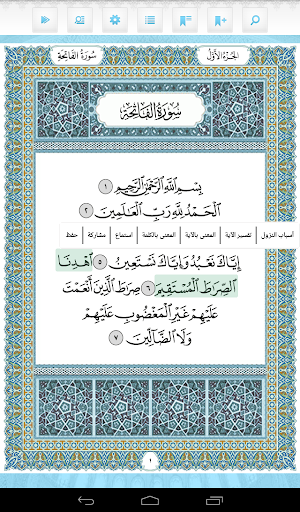 الجزء الأول سورة الفاتحة
سورة الفاتحة
بِسْمِ اللَّهِ الرَّحْمَٰنِ الرَّحِيمِ ١
الْحَمْدُ لِلَّهِ رَبِّ الْعَالَمِينَ ٢
أسباب النزول تفسير الآية المعنى بالآية المعنى بالكلمة استماع مشاركة حفظ
إِيَّاكَ نَعْبُدُ وَإِيَّاكَ نَسْتَعِينُ ٥ اهْدِنَا
الصِّرَاطَ الْمُسْتَقِيمَ ٦ صِرَاطَ الَّذِينَ أَنْعَمْتَ
عَلَيْهِمْ غَيْرِ الْمَغْضُوبِ عَلَيْهِمْ
وَلَا الضَّالِّينَ ٧
١